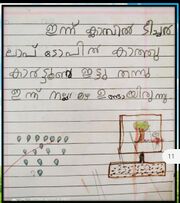 ഇന്ന് ക്ലാസിൽ ടീച്ചർ
ലാപ് ടോപിൽ കാത്തു
കാർട്ടൂൺ ഇട്ടു തന്നു
ഇന്ന് നല്ല മഴ ഉണ്ടായിരുന്നു
11